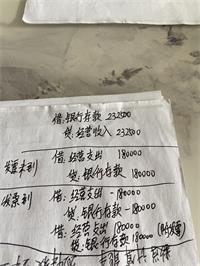 借:银行存款 232500
贷:经营收入 232500
发票未到 借:经营支出 180000
贷:银行存款 180000
发票到 借:经营支出 -180000
贷:银行存款 -180000
借:经营支出 180000
贷:银行存款 180000